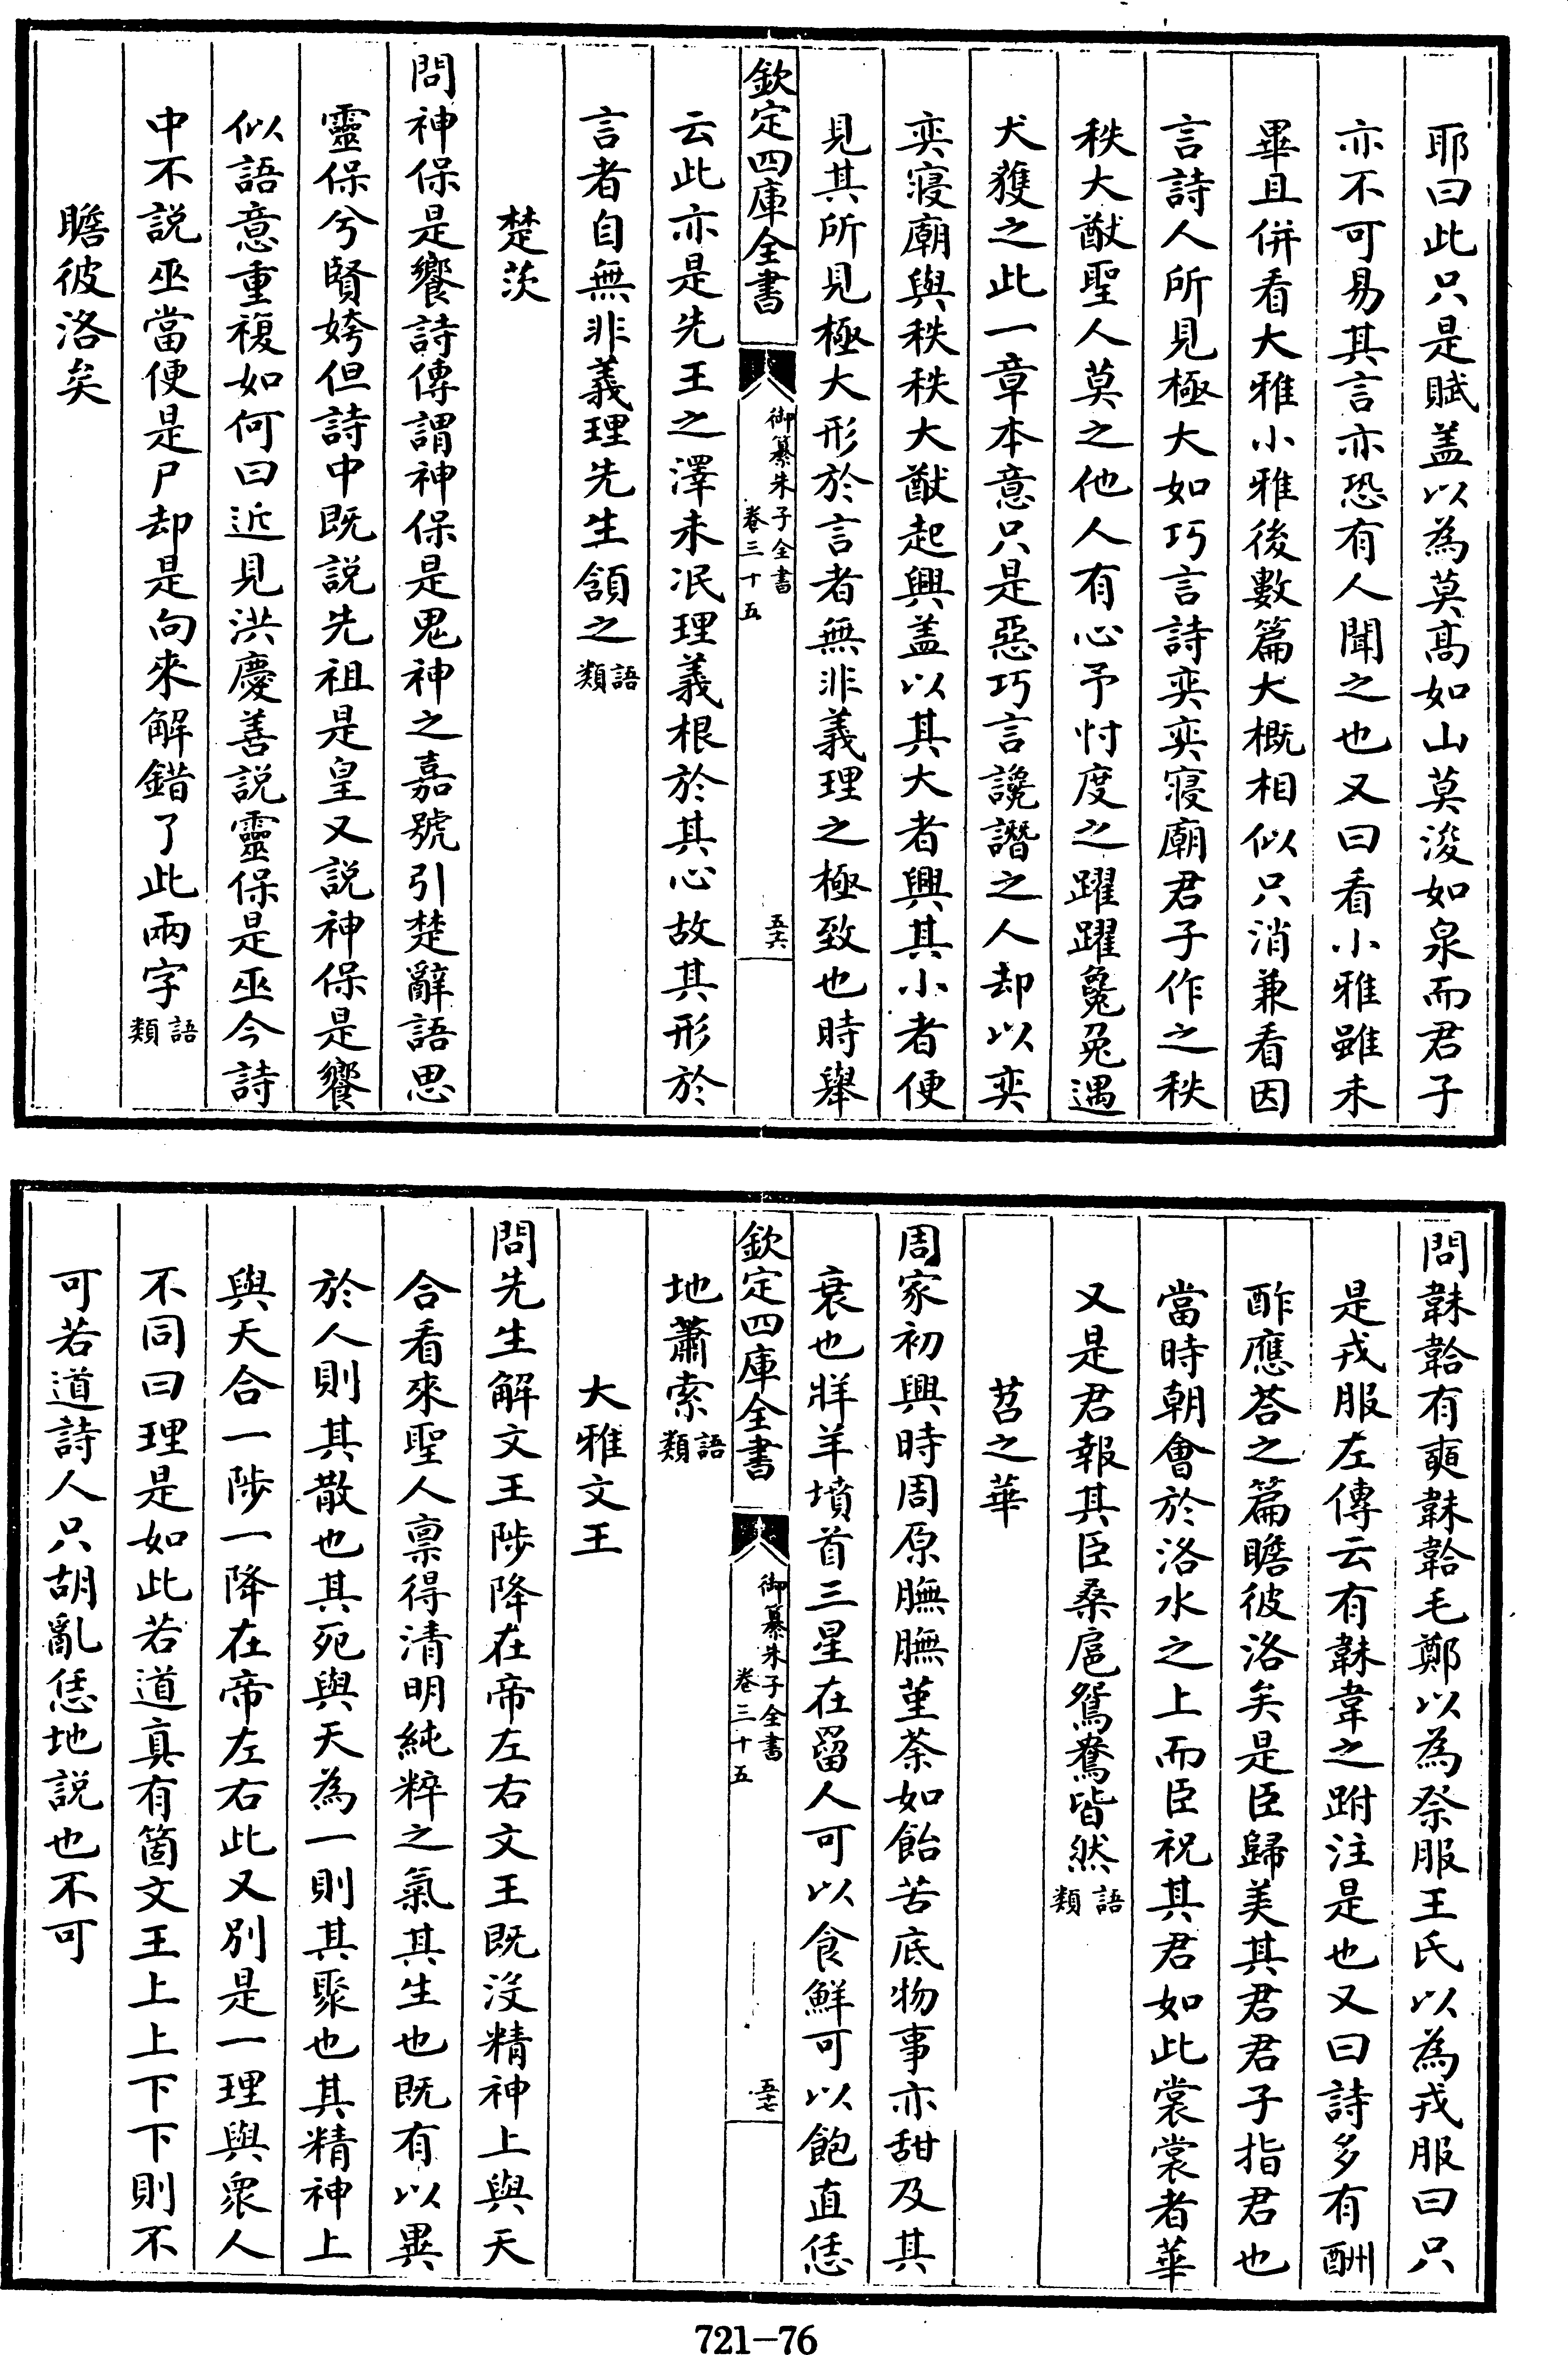 耶曰此只是賦盖以為莫髙如山莫浚如泉而君子
亦不可易其言亦恐有人聞之也又曰看小雅雖未
畢且併看大雅小雅後數篇大概相似只消兼看因
言詩人所見極大如巧言詩奕奕寢廟君子作之秩
秩大猷聖人莫之他人有心予忖度之躍躍毚兔遇
犬獲之此一章本意只是惡巧言讒譖之人却以奕
奕寢廟與秩秩大猷起興盖以其大者興其小者便
見其所見極大形於言者無非義理之極致也時舉
欽定四庫全書
御纂朱子全書
卷三十五
五六
云此亦是先王之澤未泯理義根於其心故其形於
言者自無非義理先生頷之語類
楚茨
問神保是饗詩傳謂神保是鬼神之嘉號引楚辭語思
靈保兮賢姱但詩中既説先祖是皇又説神保是饗
似語意重複如何曰近見洪慶善説靈保是巫今詩
中不説巫當便是尸却是向來解錯了此兩字語類
瞻彼洛矣
問韎韐有奭韎韐毛鄭以為祭服王氏以為戎服曰只
是戎服左傳云有韎韋之跗注是也又曰詩多有酬
酢應荅之篇瞻彼洛矣是臣歸美其君君子指君也
當時朝會於洛水之上而臣祝其君如此裳裳者華
又是君報其臣桑扈鴛鴦皆然語類
苕之華
周家初興時周原膴膴堇荼如飴苦底物事亦甜及其
衰也牂羊墳首三星在罶人可以食鮮可以飽直恁
欽定四庫全書
御纂朱子全書
卷三十五
五七
地蕭索語類
大雅文王
問先生解文王陟降在帝左右文王既没精神上與天
合看來聖人禀得清明純粹之氣其生也既有以異
於人則其散也其死與天為一則其聚也其精神上
與天合一陟一降在帝左右此又別是一理與衆人
不同曰理是如此若道真有箇文王上上下下則不
可若道詩人只胡亂恁地説也不可
721-76